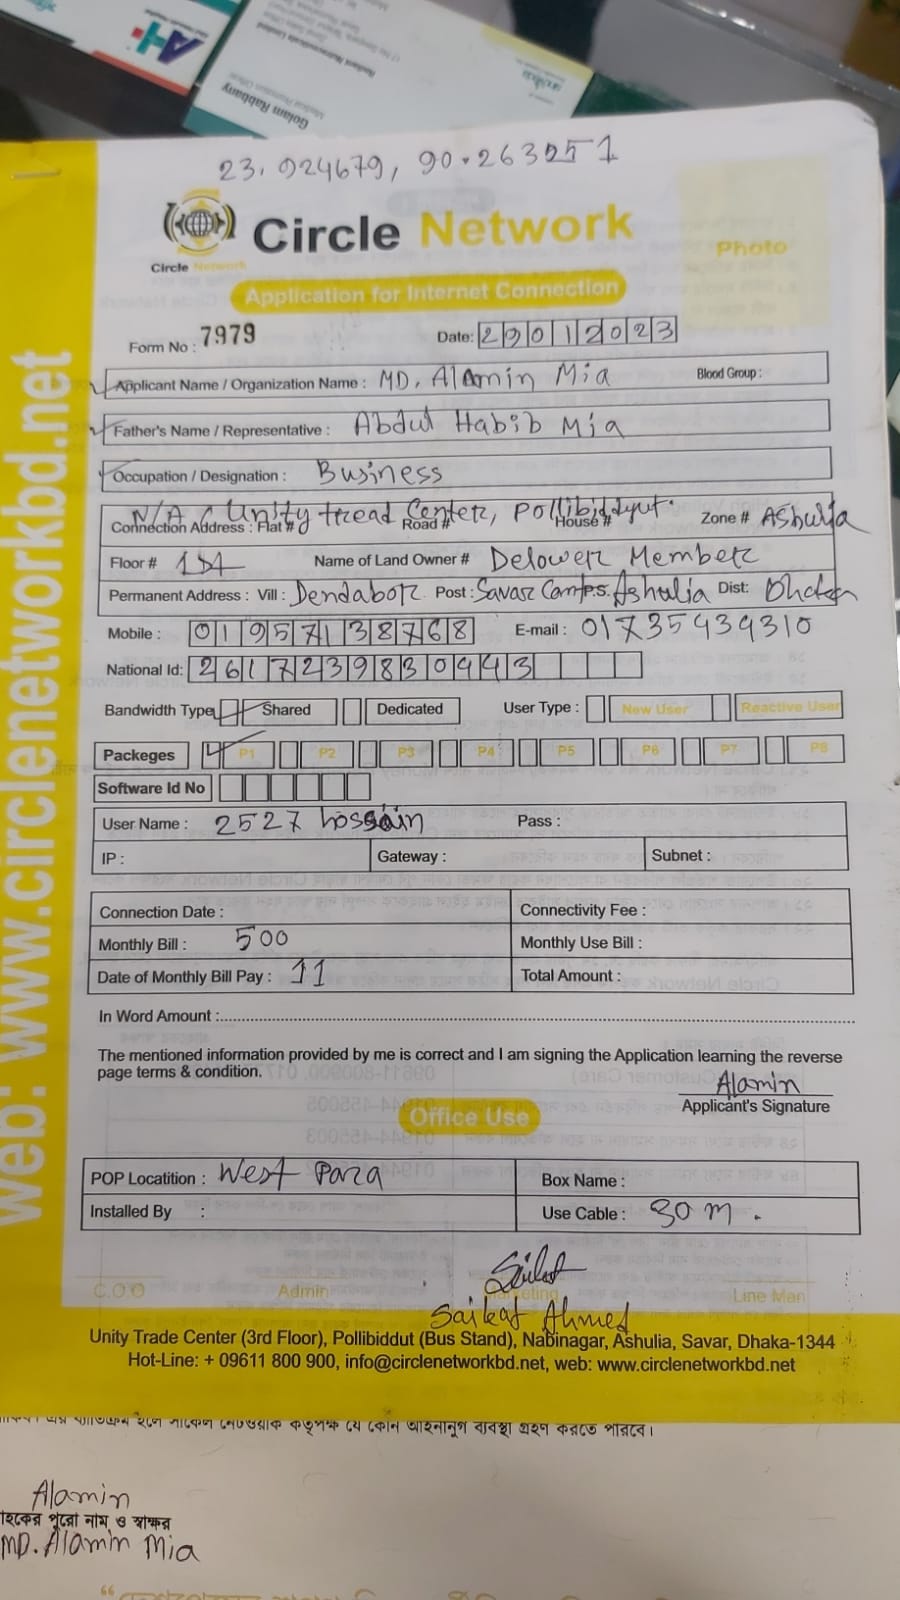 Golam Rabbany
23.924679, 90.263251
Circle Network
Circle Network
Photo
Application for Internet Connection
Form No : 7979
Date: 29012023
Applicant Name / Organization Name : MD. Alamin Mia Blood Group :
Father's Name / Representative : Abdul Habib Mia
Occupation / Designation : Business
Connection Address : Flat # N/A / Unity tread Center, Road # Pollibiddyut. House # Zone # Ashulia
Floor # 1st Name of Land Owner # Delower Member
Permanent Address : Vill : Dendabor Post : Savar Cant P.S. Ashulia Dist: Dhaka
Mobile : 01957138768 E-mail : 01735939310
National Id: 26172398309443
Bandwidth Type Shared Dedicated User Type : New User Reactive User
Packeges P1 P2 P3 P4 P5 P6 P7 P8
Software Id No
User Name : 2527 hossain Pass :
IP : Gateway : Subnet :
Connection Date : Connectivity Fee :
Monthly Bill : 500 Monthly Use Bill :
Date of Monthly Bill Pay : 11 Total Amount :
In Word Amount :
The mentioned information provided by me is correct and I am signing the Application learning the reverse
page terms & condition.
Alamin
Applicant's Signature
Office Use
POP Locatition : West Para Box Name :
Installed By : Use Cable : 30 m.
Saikat
C.O.O Admin Marketing Line Man
Saikat Ahmed
Unity Trade Center (3rd Floor), Pollibiddut (Bus Stand), Nabinagar, Ashulia, Savar, Dhaka-1344
Hot-Line: + 09611 800 900, info@circlenetworkbd.net, web: www.circlenetworkbd.net
web: www.circlenetworkbd.net
সার্কেল নেটওয়ার্ক কর্তৃপক্ষ যে কোন আইনানুগ ব্যবস্থা গ্রহণ করতে পারবে।
Alamin
গ্রাহকের পুরো নাম ও স্বাক্ষর
MD. Alamin Mia